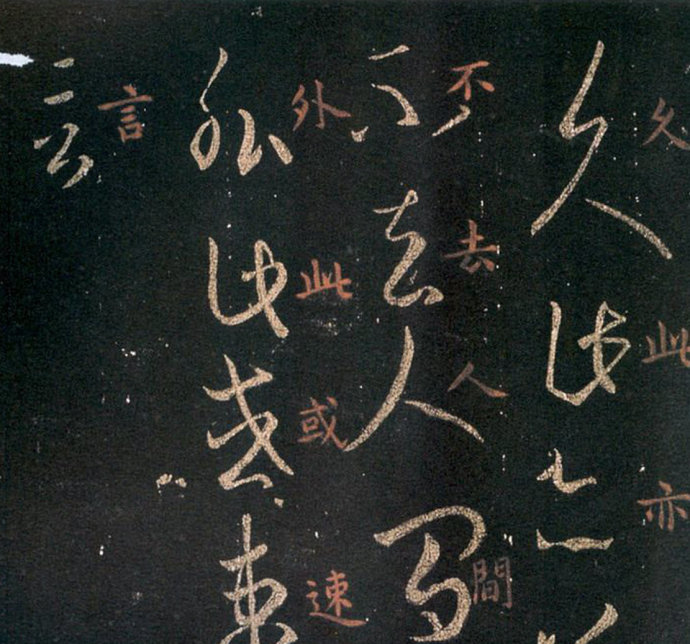 久此亦
不去人間
外此或速
言